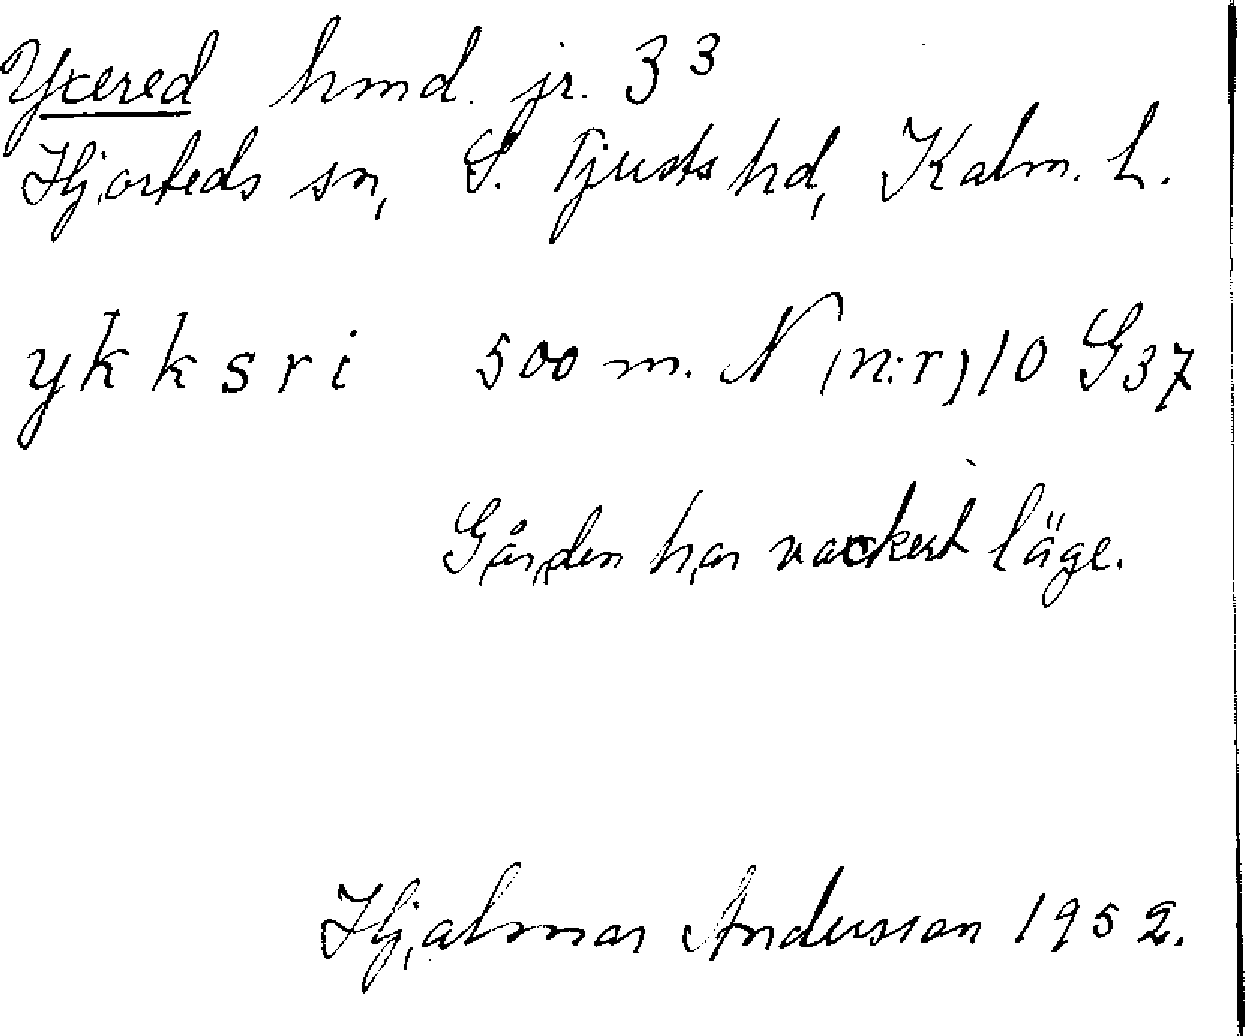 Yxered hmd. jr. 3 3
Hjorteds sn, S. Tjusts hd, Kalm. L.
ykksri 500 m. N (n:r) 10 G37
Gården har vackert läge.
Hjalmar Andersson 1952.